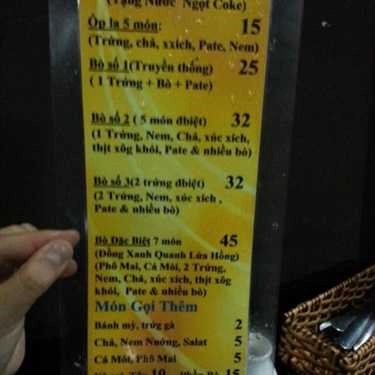 (Tặng Nước Ngọt Coke)
Ốp la 5 món: 15
(Trứng, chả, xxích, Pate, Nem)
Bò số 1(Truyền thống) 25
( 1 Trứng + Bò + Pate)
Bò số 2 ( 5 món đbiệt) 32
(1 Trứng, Nem, Chả, xúc xích,
thịt xôg khói, Pate & nhiều bò)
Bò số 3(2 trứng đbiệt) 32
(2 Trứng, Nem, xúc xích ,
Pate & nhiều bò)
Bò Đặc Biệt 7 món 45
(Đồng Xanh Quanh Lửa Hồng)
(Phô Mai, Cá Mòi, 2 Trứng,
Nem, Chả, xúc xích, thịt xôg
khói, Pate & nhiều bò)
Món Gọi Thêm
Bánh mỳ, trứg gà 2
Chả, Nem Nướng, Salat 5
Cá Mòi, Phô Mai 5
10 15